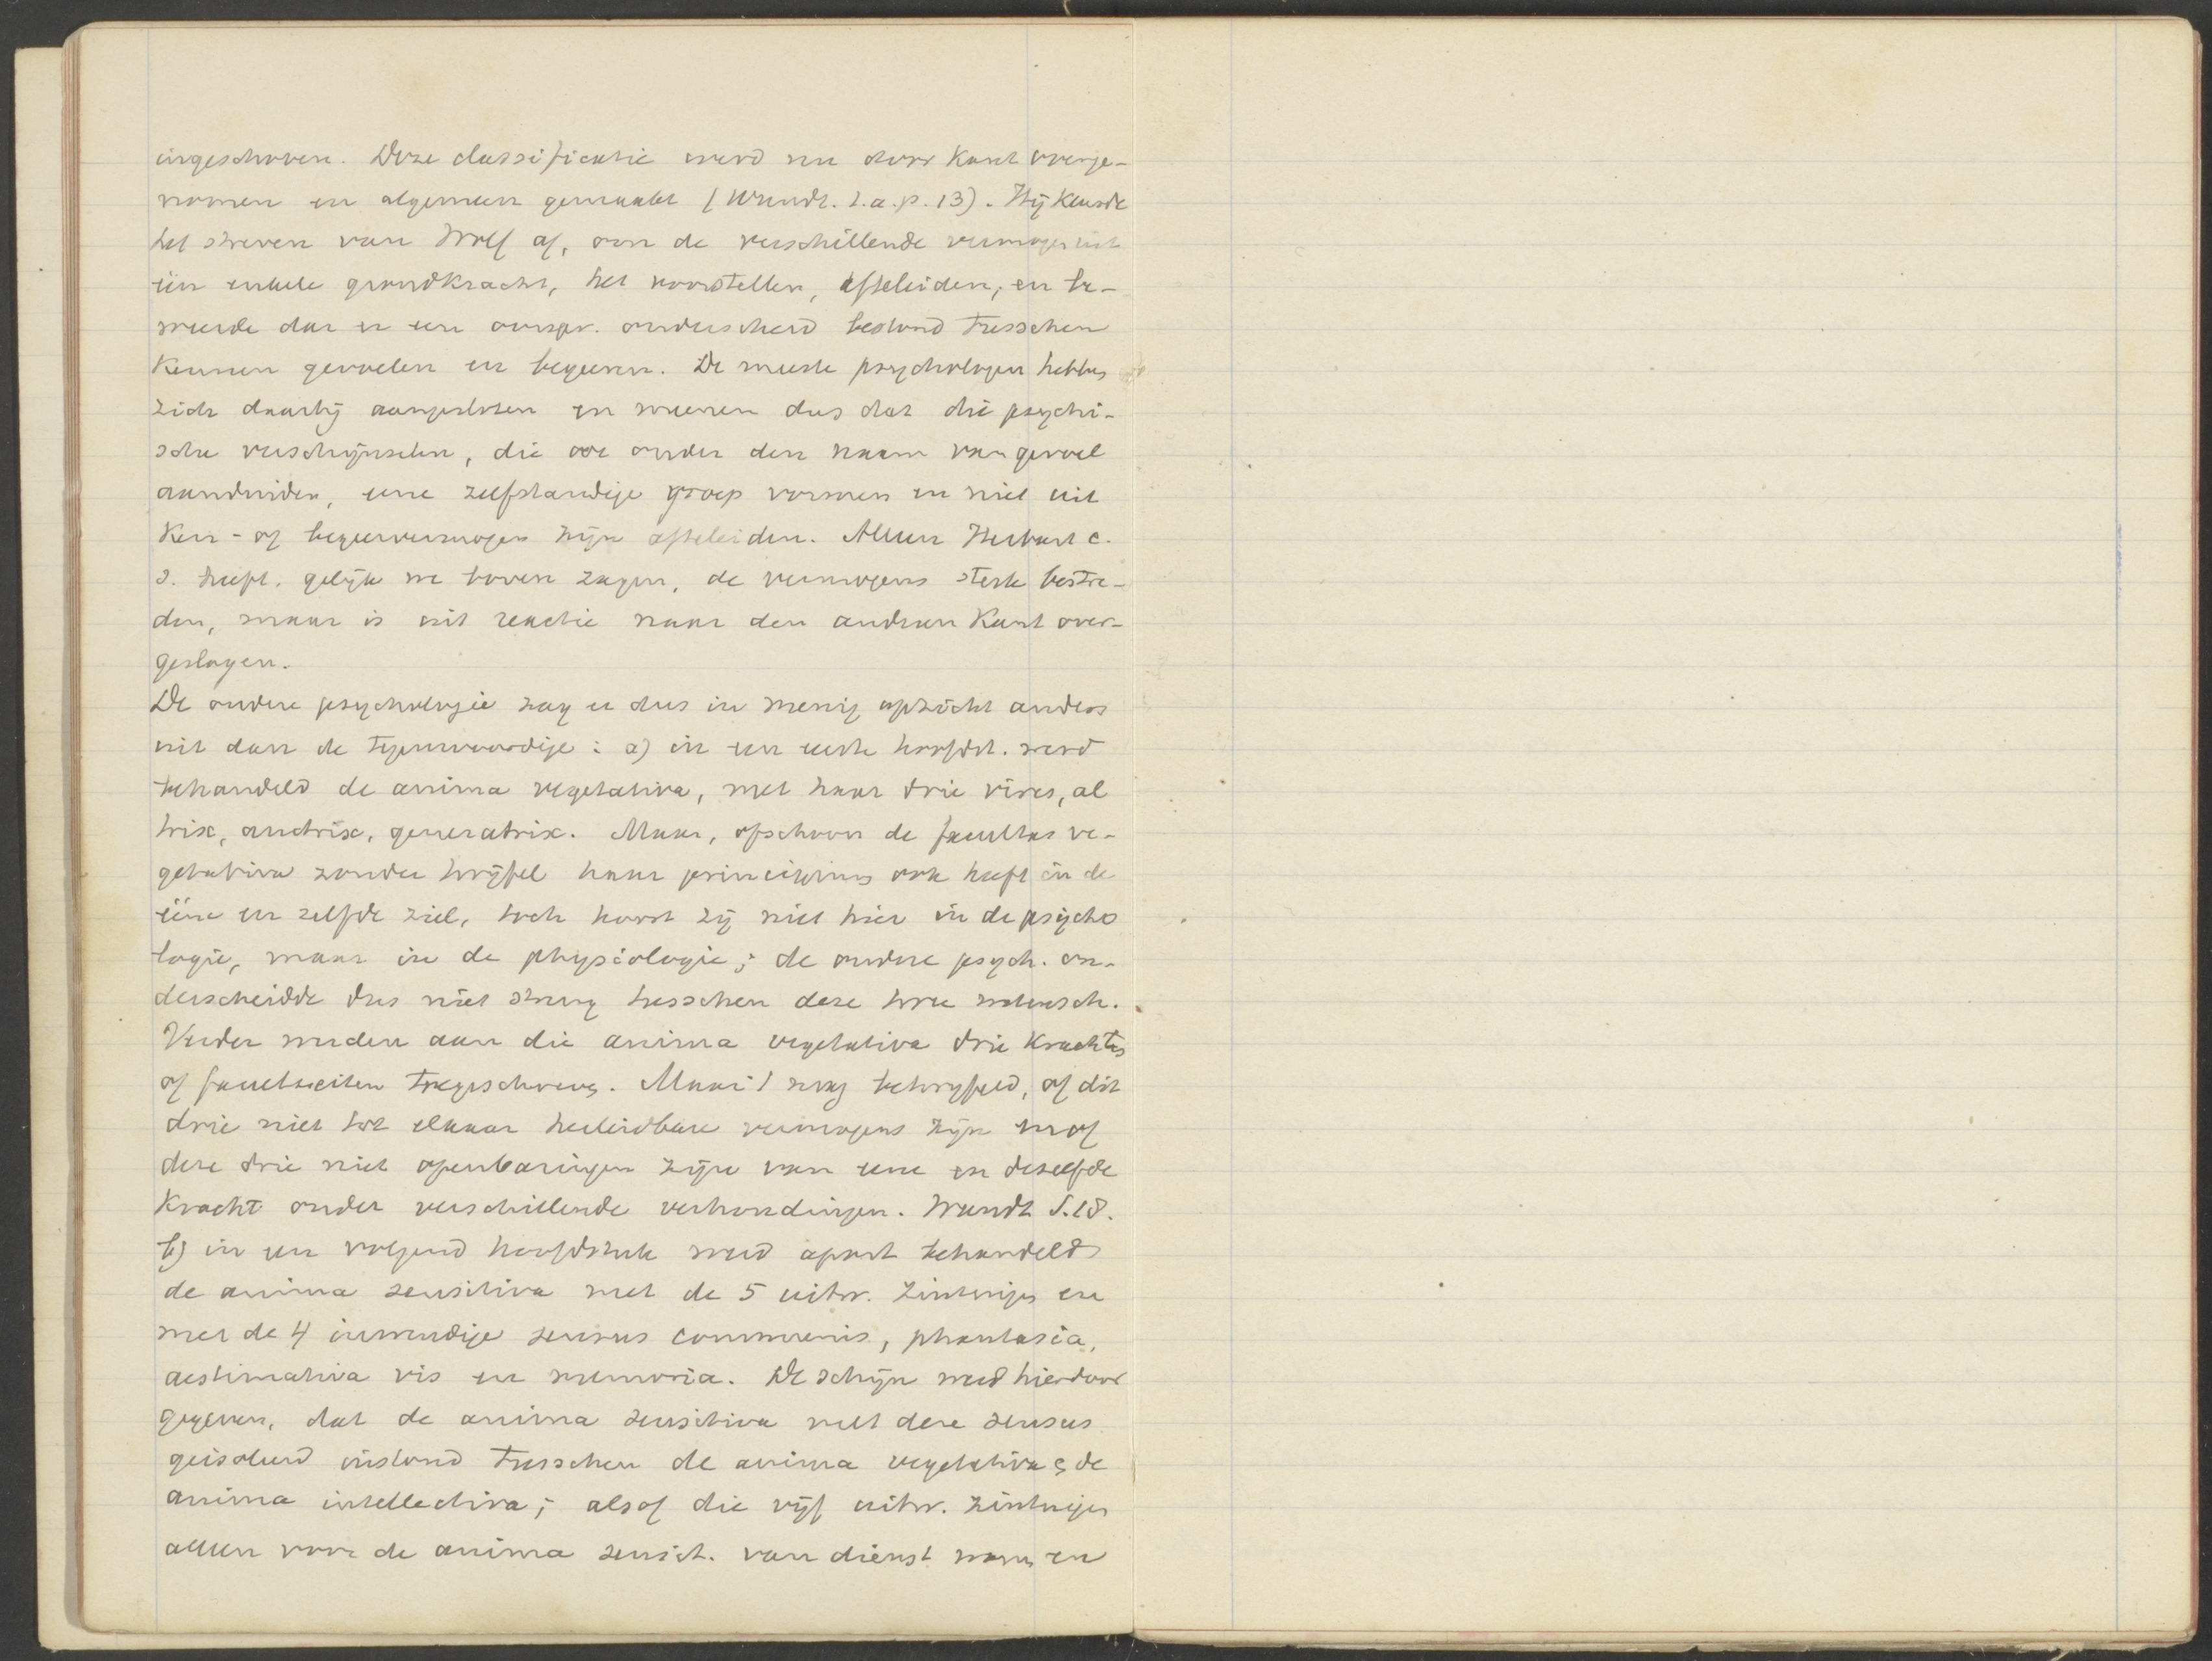 ingeschoven. Deze classificatie werd nu door Kant overge-
nomen en algemeen gemaakt (Wundt. l.a.p. 13). Hij keurde
het streven van Wolf af, om de verschillende vermogens uit
één enkele grondkracht, het voorstellen, afteleiden, en be-
weerde dat er een oorspr. onderscheid bestond tusschen
kennen gevoelen en begeeren. De meeste psychologen hebben
zich daarbij aangesloten en meenen dus dat die psychi-
sche verschijnselen, die we onder den naam van gevoel
aanduiden, eene zelfstandige groep vormen en niet uit
ken- of begeervermogen zijn afteleiden. Alleen Herbart c.
s. heeft, gelijk we boven zagen, de vermogens sterk bestre-
den, maar is uit reactie naar den anderen kant over-
geslagen.
De oudere psychologie zag er dus in menig opzicht anders
uit dan de tegenwoordige: a) in een eerste hoofdst. werd
behandeld de anima vegetativa, met haar drie vires, al
trix, auctrix, generatrix. Maar, ofschoon de facultas ve-
getativa zonder twijfel haar principium ook heeft in de
ééne en zelfde ziel, toch hoort zij niet hier in de psycho
logie, maar in de physiologie; de oudere psych. on-
derscheidde dus niet streng tusschen deze twee wetensch.
Verder werden aan die anima vegetativa drie krachten
of faculteiten toegeschreven. Maar 't mag betwijfeld, of dit
drie niet tot elkaar herleidbare vermogens zijn en of
deze drie niet openbaringen zijn van eene en dezelfde
kracht onder verschillende verhoudingen. Wundt S.18.
b) in een volgend hoofdstuk werd apart behandeld
de anima sensitiva met de 5 uitw. zintuigen en
met de 4 inwendige sensus communis, phantasia,
aestimativa vis en memoria. De schijn werd hierdoor
gegeven, dat de anima sensitiva met deze sensus
geisoleerd instond tusschen de anima vegetativa & de
anima intellectiva; alsof die vijf uitw. zintuigen
alleen voor de anima sensit. van dienst waren en